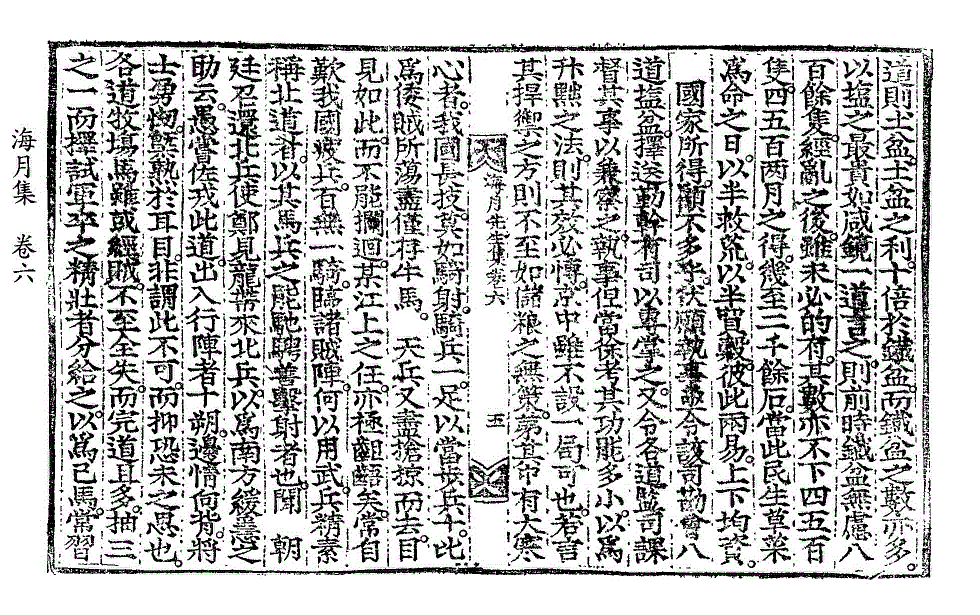 道則土盆土盆之利十倍於鐵盆而鐵盆之數亦多
以塩之最貴如咸鏡一道言之則前時鐵盆無慮八
百餘隻經亂之後雖未必的有其數亦不下四五百
隻四五百兩月之得幾至二千餘石當此民生草藥
爲命之日以半救荒以半貿穀彼此兩易上下均資
國家所得顧不多乎伏願執事亟令該司勘會八
道塩盆擇送勤幹有司以專掌之又令各道監司課
督其事以兼察之執事但當徐考其功能多小以爲
升黜之法則其效必愽京中雖不設一局可也若言
其捍禦之方則不至如儲粮之無策第其中有大寒
海月先生文集卷六
五
心者我國長技莫如騎射騎兵一足以當步兵十此
爲倭賊所蕩盡僅存牛馬 天兵又盡搶掠而去目
見如此而不能攔迴某江上之任亦極齟齬矣常自
歎我國疲兵百無一騎臨諸賊陣何以用武兵精素
稱北道者以其馬兵之能馳騁善擊射者也聞 朝
廷召還北兵使鄭見龍帶來北兵以爲南方緩急之
助云愚嘗佐戎此道出入行陣者十朔邊情向背將
士勇㤼慭熟於耳目非謂此不可而抑恐未之思也
各道牧塲馬雖或經賊不至全失而完道且多抽三
之一而擇試軍卒之精壯者分給之以爲己馬常習
海月集 卷六